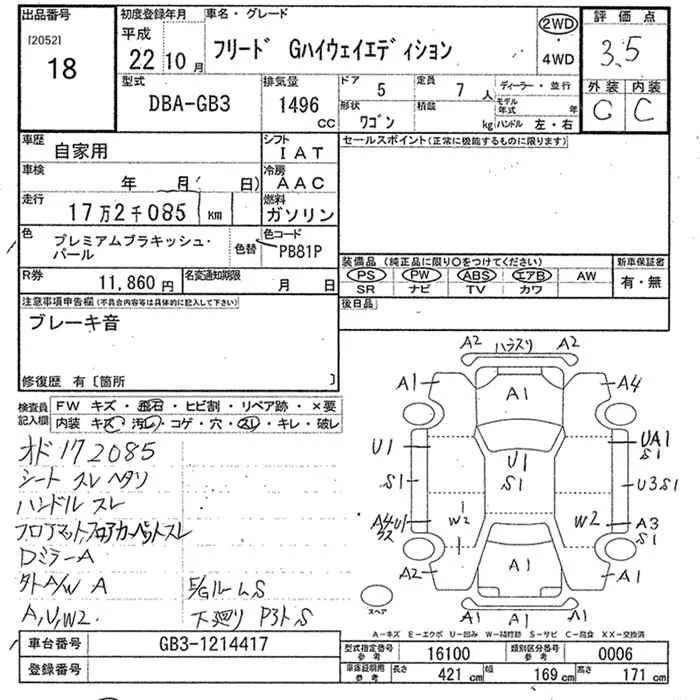 出品番号 初度登録年月 車名・グレード 評価点
[2052] 平成 2WD
18 22 10月 フリード Gハイウェイエディション 4WD 3.5
型式 排気量 ドア 5 定員 7人 ディーラー・並行 外装 内装
DBA-GB3 1496 CC 形状 ワゴン 積載 kg モデル年式 年 ハンドル 左・右 G C
車歴 自家用 シフト IAT セールスポイント(正常に機能するものに限ります)
車検 年 月( 日) 冷房 AAC
走行 17万2千085 km 燃料 ガソリン
色 プレミアムブラキッシュ・パール 色替 色コード PB81P
装備品(純正品に限り○をつけてください) 新車保証書
R券 11,860円 名変通知期限 月 日
PS PW ABS エアB AW 有・無
SR ナビ TV カワ
注意事項申告欄(不具合内容等は具体的に記入して下さい) 後日品
ブレーキ音
修復歴 有〔箇所 〕
検査員記入欄 FW キズ・飛石・ヒビ割・リペア跡・×要
内装 キズ・汚レ・コゲ・穴・スレ・キレ・破レ
オド172085
シート スレ ヘタリ
ハンドル スレ
フロアマット,フロアカーペットスレ
Dミラー A
外A/W A E/Gルーム S
A,U,W2 下廻り P3ト,S
A2 ハラスリ A2
A1 A1 A4
U1 U1 UA1
S1 S1 S1 U3 S1
A4 U1 W2 W2 A3
S1
A2 A1 A1
スペア A1 A1
A-キズ E-エクボ U-凹み W-補修跡 S-サビ C-腐食 XX-交換済
車台番号 GB3-1214417 型式指定番号 参考 16100 類別区分番号 参考 0006
登録番号 車庫証明用 参考 長さ 421 cm 幅 169 cm 高さ 171 cm